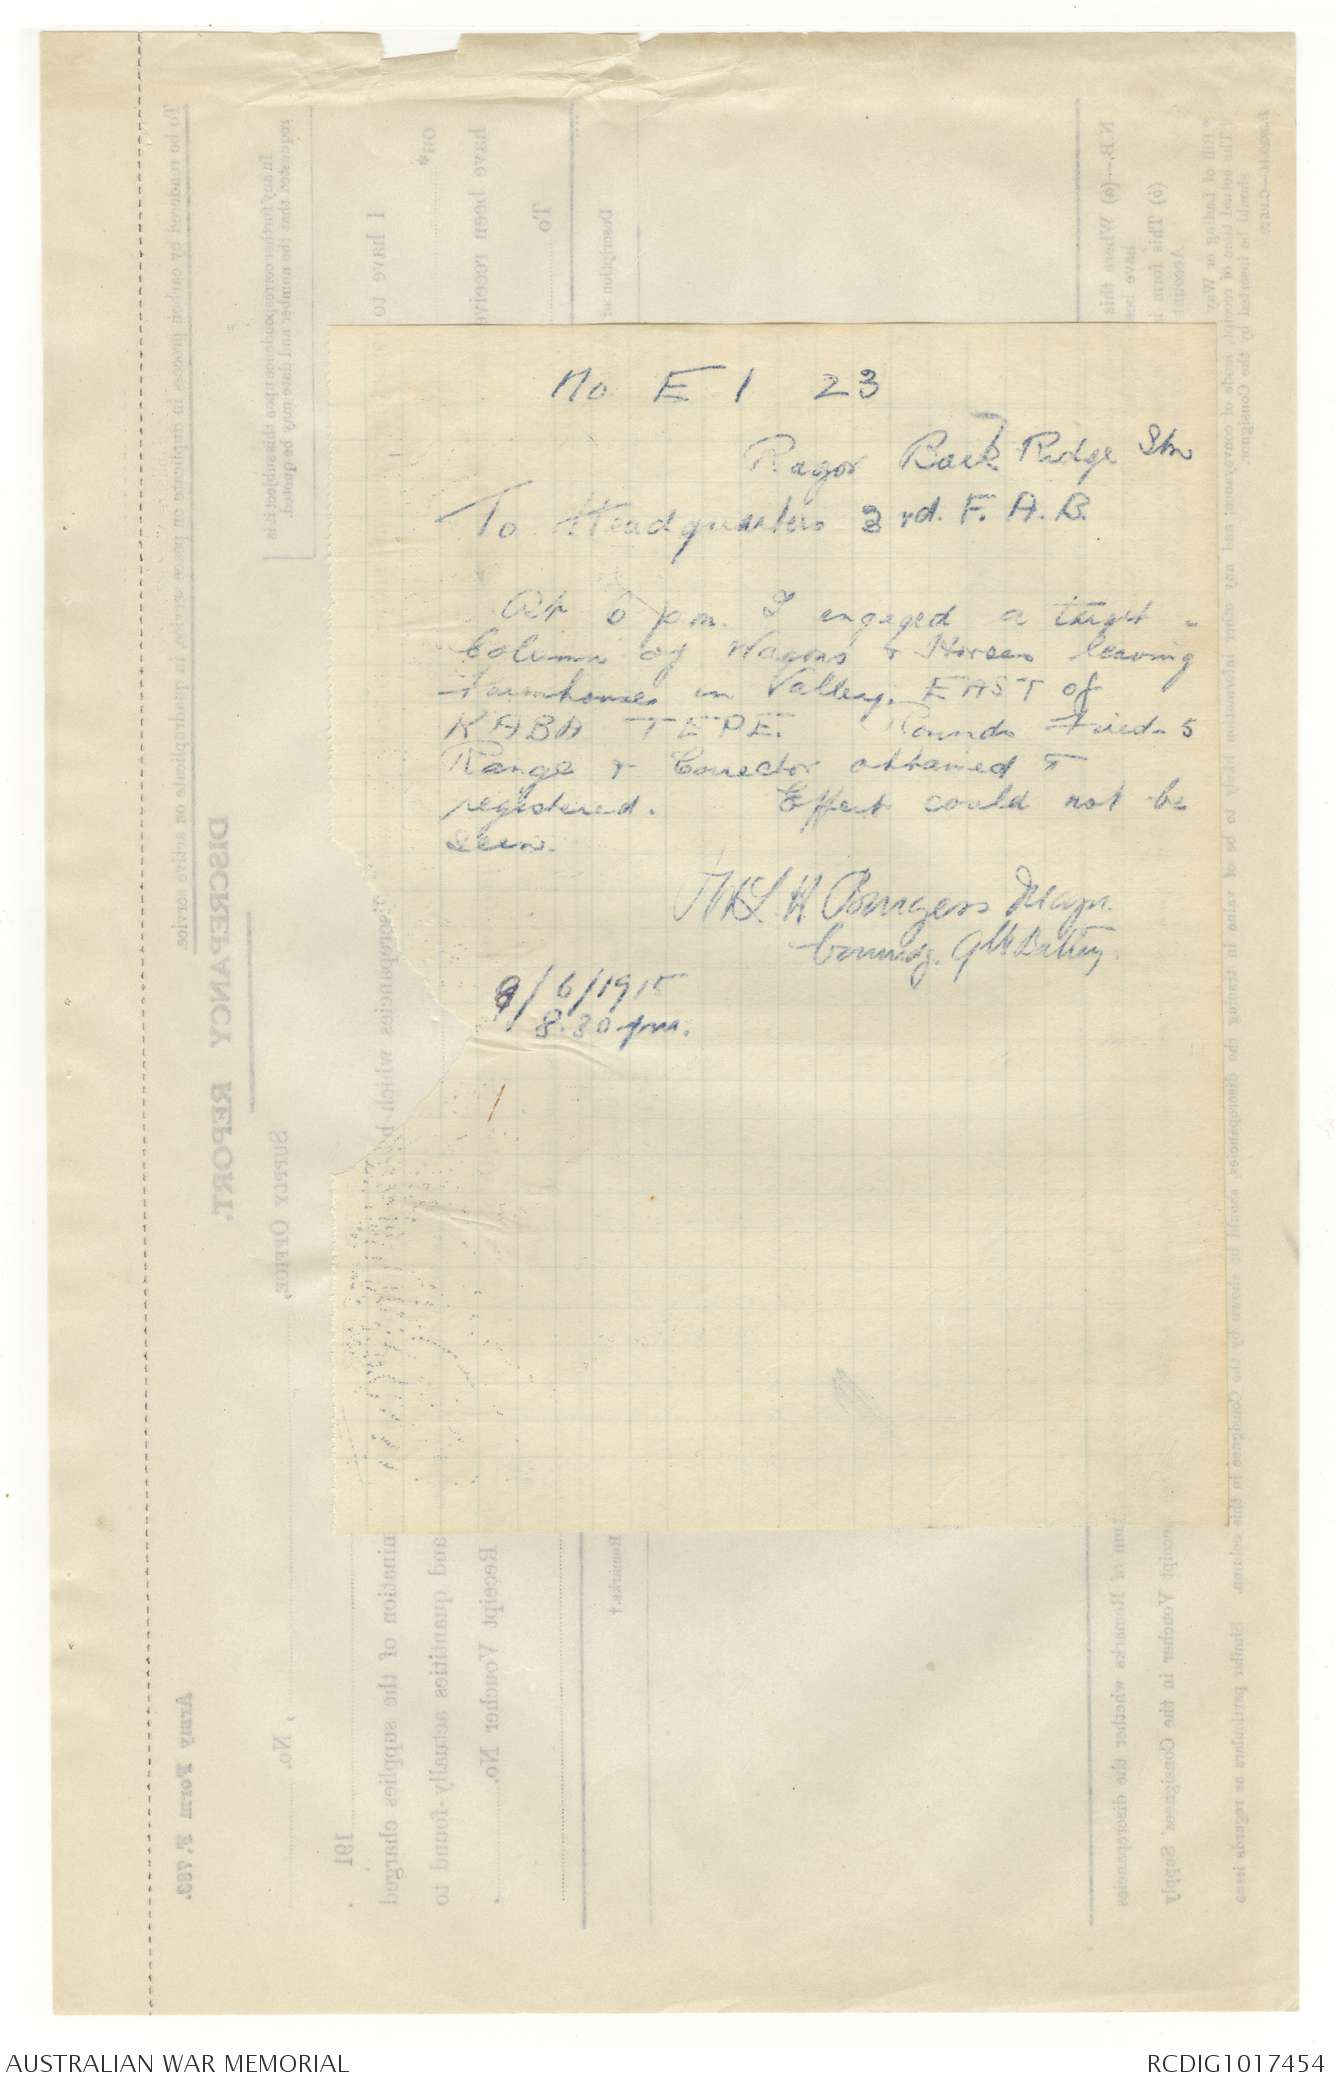 No E 1 23
Razor Back Ridge Stn
To Headquarters 3rd. F. A. B.
At 6 pm. I engaged a target -
Column of Wagons & Horses leaving
Farmhouses in Valley, EAST of
KABA TEPE. Rounds Fired - 5
Range & Corrector obtained &
registered. Effect could not be
seen.
W L H Burgess Major.
Commdg. 9th Battery.
9/6/1915
8.30 pm.
Army Form F. 783.
DISCREPANCY REPORT.
To be rendered by carbon process in duplicate on peace service, in quadruplicate on active service
In any further correspondence upon this subject it is
requested that the number and date may be quoted.
SUPPLY OFFICE,
, No.
191 .
I have to
mination of the supplies charged
discrepancies which b
on*
and quantities actually found to
have been receive
Receipt Voucher No.
To
Description or
Remarks.†
N.B.—(a) When this
of Remarks whether the discrepancies
have be
(b) This form i
Receipt Voucher in the Consignees' Supply
Account
AUSTRALIAN WAR MEMORIAL
RCDIG1017454